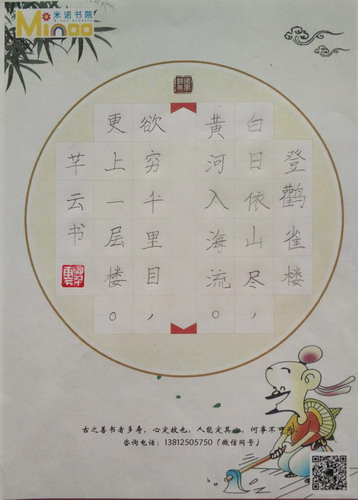 米诺书院
Minoo
登鹳雀楼
白日依山尽，
黄河入海流。
欲穷千里目，
更上一层楼。
芊云书
古之善书者多寿，心定故也，人能定其心，何事不可为
咨询电话：13812505750（微信同号）